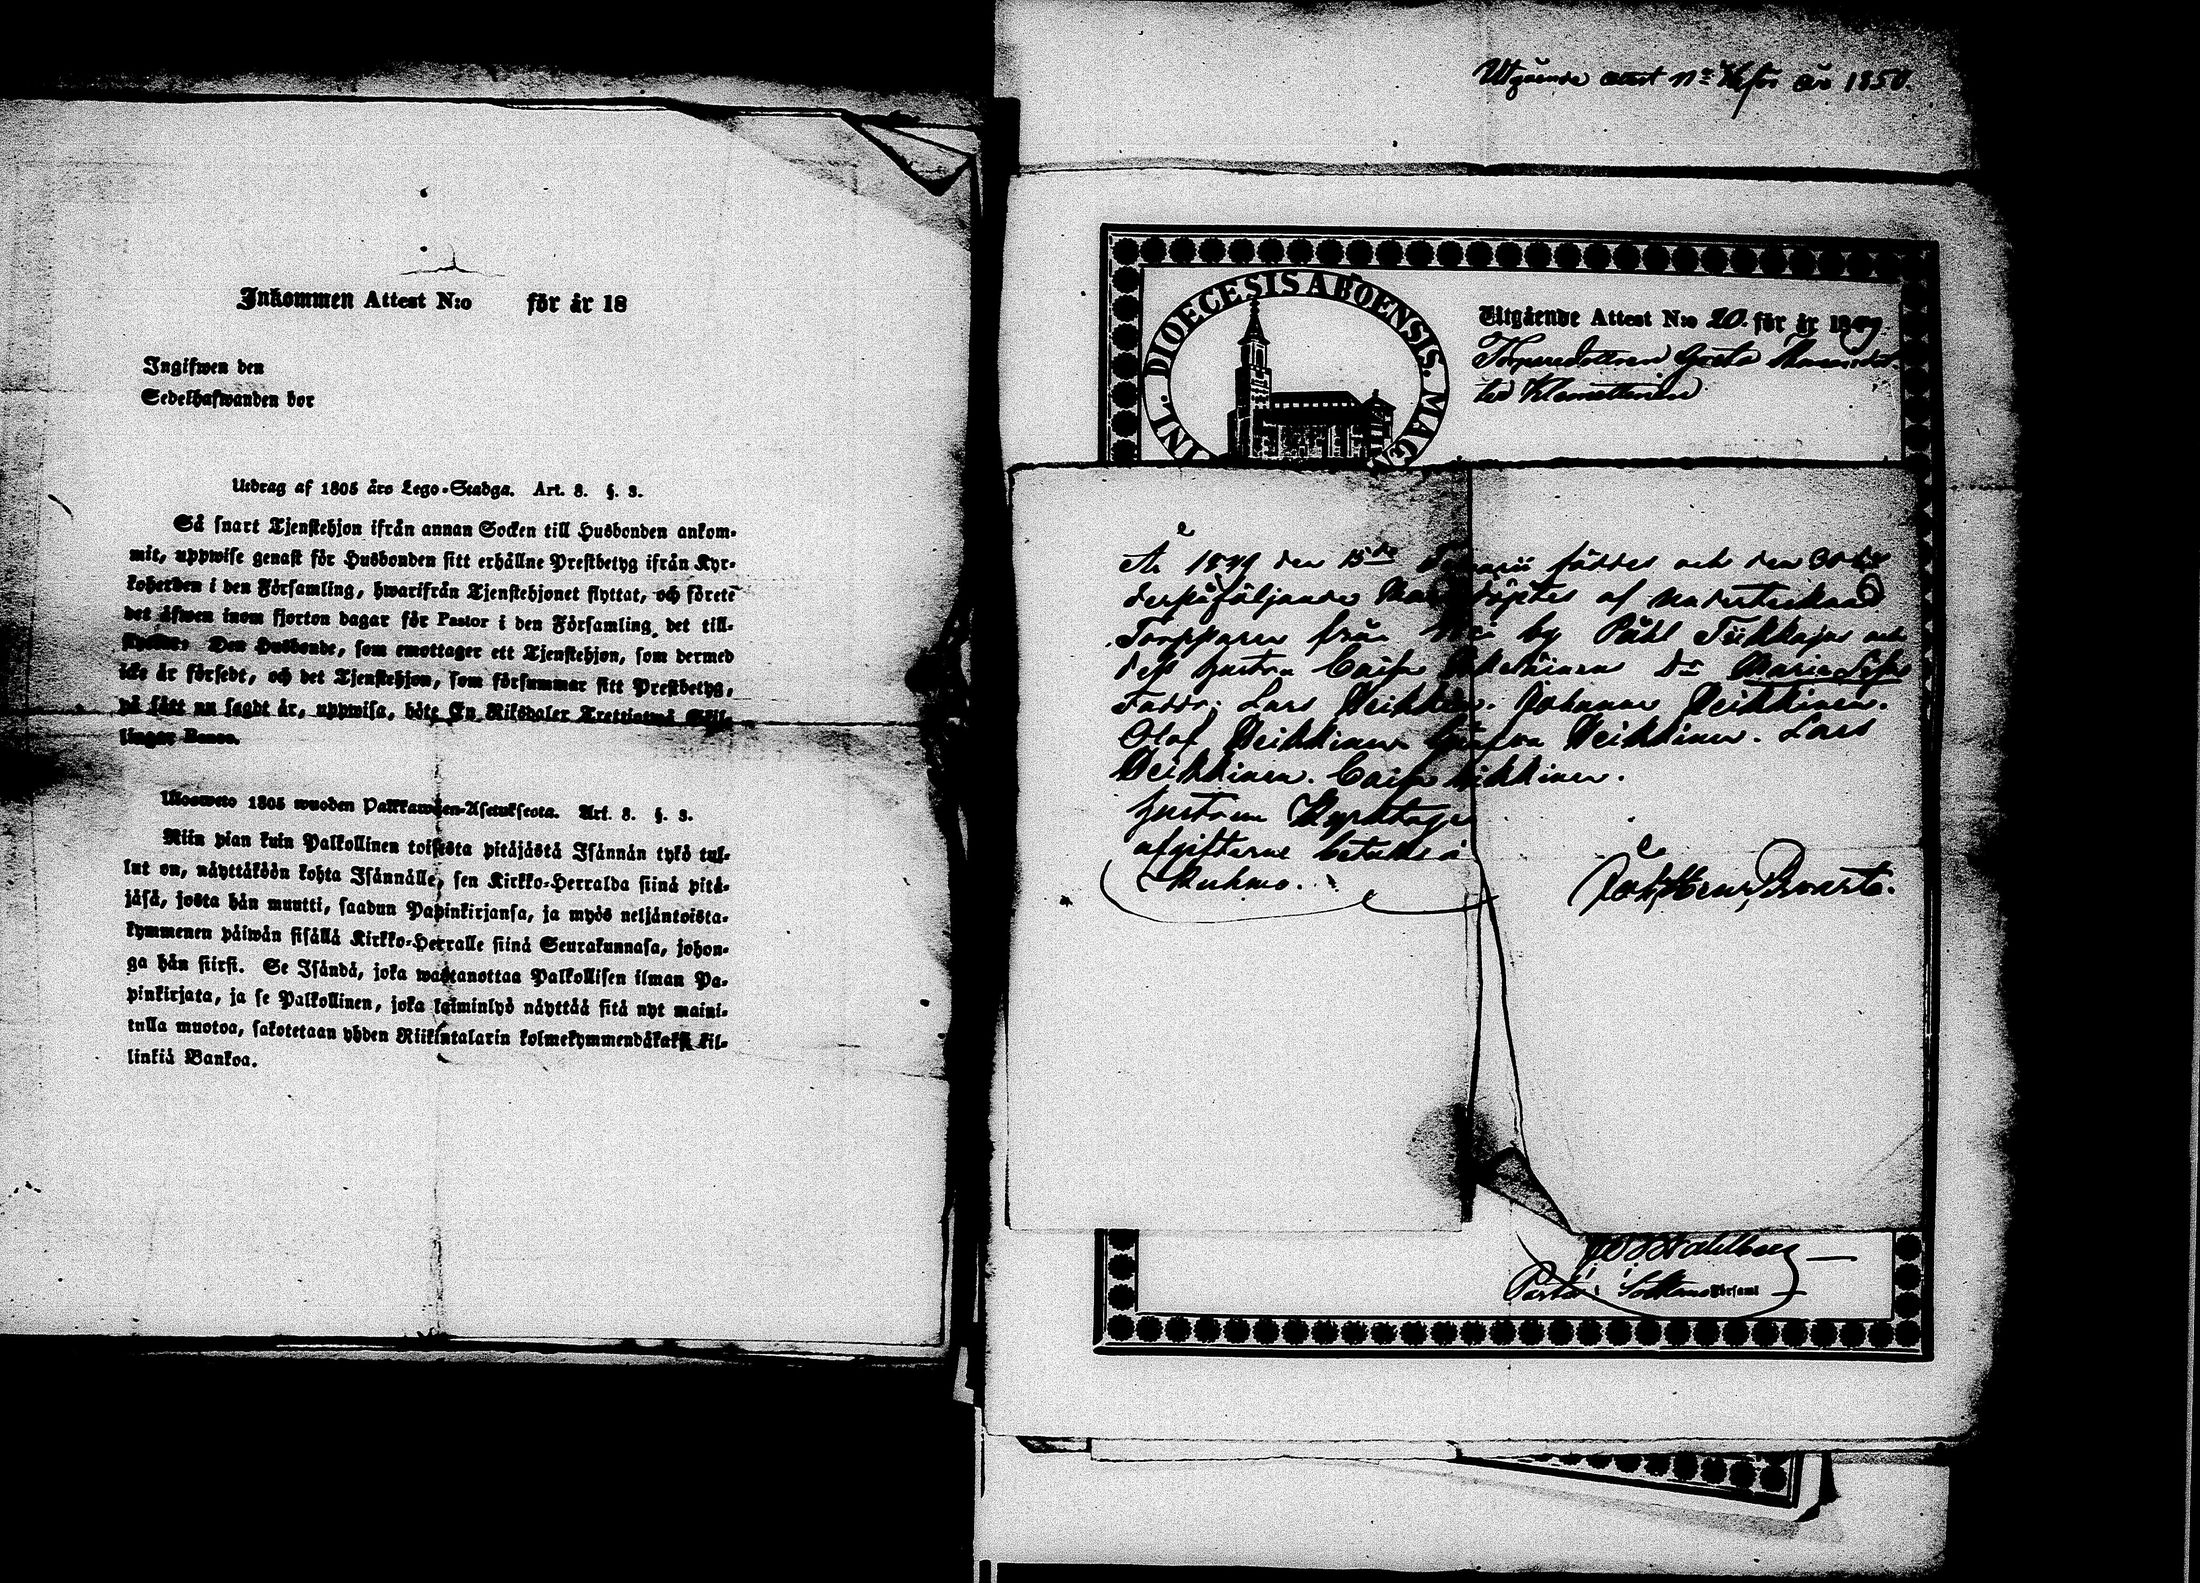 Inkommen Attest N:o för år 18
Ingifwen den
Sedelhafwanden bor
Utdrag af 1805 års Lego-Stadga. Art. 8. §. 3.
Så snart Tjenstehjon ifrån annan Socken till Husbonden ankom-
mit, uppwise genast för Husbonden sitt erhållne Prestbetyg ifrån Kyr-
koherden i den Församling, hwarifrån Tjenstehjonet flyttat, och förete
det äfwen inom fjorton dagar för Pastor i den Församling det till-
flyttar. Den Husbonde, som emottager ett Tjenstehjon, som dermed
icke är försedt, och det Tjenstehjon, som försummar sitt Prestbetyg,
på sätt nu sagdt är, uppwisa, böte En Riksdaler Trettiotwå Skil-
lingar Banco.
Ulosweto 1805 wuoden Palkkawäen-Asetuksesta. Art. 8. §. 3.
Niin pian kuin Palkollinen toisesta pitäjästä Isännän tykö tul-
lut on, näyttäköön kohta Isännälle, sen Kirkko-Herralda siinä pitä-
jäsä, josta hän muutti, saadun Papinkirjansa, ja myös neljäntoista-
kymmenen päiwän sisällä Kirkko-Herralle siinä Seurakunnasa, johon-
ga hän siirsi. Se Isändä, joka wastanottaa Palkollisen ilman Pa-
pinkirjata, ja se Palkollinen, joka laiminlyö näyttää sitä nyt maini-
tulla muotoa, sakotetaan yhden Riikintalarin kolmekymmendäkaksi kil-
linkiä Bankoa.
Utgående attest No för år 1850.
INL. DIOECESIS ABOENSIS. MAG
Utgående Attest N:o 20. för år 1849
Greta
A:o 1849 den 15de föddes och den
derpåföljande döptes af undertecknad
Torpparen från by Påhl Tikkaja och
dess hustru Caisa Dr Maria Sofia
Faddr: Lars Heikkinen. Johanna Heikkinen.
Olof Heikkinen hustru Heikkinen. Lars
Heikkinen. Caisa Heikkinen.
hustrun Kyrktagen
afgifterne betalda i
Kuhmo.
Joh. Henr.
Wahlberg
Pastor i Sotkamo Församl